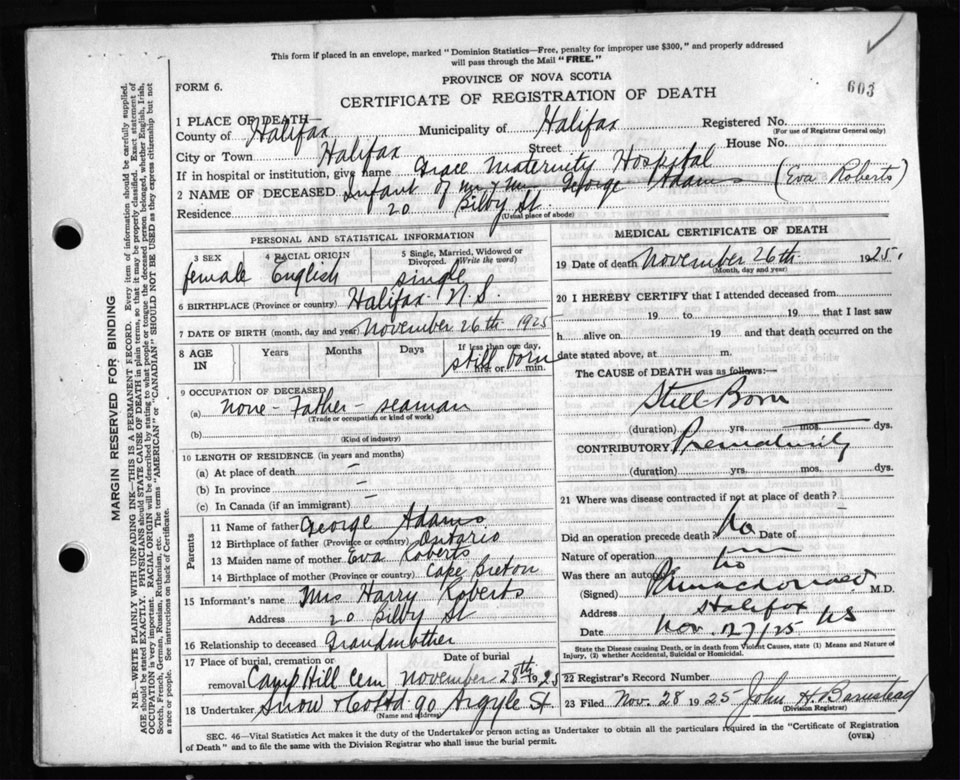 This form if placed in an envelope, marked "Dominion Statistics—Free, penalty for improper use $300," and properly addressed
will pass through the Mail "FREE."
PROVINCE OF NOVA SCOTIA
603
FORM 6.
CERTIFICATE OF REGISTRATION OF DEATH
1 PLACE OF DEATH—
County of Halifax Municipality of Halifax Registered No.
(For use of Registrar General only)
City or Town Halifax Street House No.
If in hospital or institution, give name Grace Maternity Hospital
2 NAME OF DECEASED Infant of Mr & Mrs George Adams (Eva Roberts)
Residence 20 Bilby St.
(Usual place of abode)
PERSONAL AND STATISTICAL INFORMATION
3 SEX 4 RACIAL ORIGIN 5 Single, Married, Widowed or Divorced. (Write the word)
female English single
6 BIRTHPLACE (Province or country) Halifax N.S.
7 DATE OF BIRTH (month, day and year) November 26th 1925
8 AGE IN Years Months Days If less than one day,
still born hrs. or min.
9 OCCUPATION OF DECEASED
(a) none - Father - seaman
(Trade or occupation or kind of work)
(b)
(Kind of industry)
10 LENGTH OF RESIDENCE (in years and months)
(a) At place of death –
(b) In province –
(c) In Canada (if an immigrant) –
Parents
11 Name of father George Adams
12 Birthplace of father (Province or country) Ontario
13 Maiden name of mother Eva Roberts
14 Birthplace of mother (Province or country) Cape Breton
15 Informant's name Mrs Harry Roberts
Address 20 Bilby St
16 Relationship to deceased Grandmother
17 Place of burial, cremation or removal Date of burial
Camp Hill Cem November 28th 1925
18 Undertaker Snow & Co Ltd 90 Argyle St.
(Name and address)
MEDICAL CERTIFICATE OF DEATH
19 Date of death November 26th 1925.
(Month, day and year)
20 I HEREBY CERTIFY that I attended deceased from
19 to 19 that I last saw
h alive on 19 and that death occurred on the
date stated above, at m.
The CAUSE of DEATH was as follows:—
Still Born
(duration) yrs. mos. dys.
CONTRIBUTORY Prematurity
(duration) yrs. mos. dys.
21 Where was disease contracted if not at place of death?
Did an operation precede death? No Date of
Nature of operation
Was there an autopsy no
(Signed) M.D.
Address Halifax
Date Nov. 27/25 NS
State the Disease causing Death, or in death from Violent Causes, state (1) Means and Nature of
Injury, (2) whether Accidental, Suicidal or Homicidal.
22 Registrar's Record Number
23 Filed Nov. 28 1925 John H. Barnstead
(Division Registrar)
SEC. 46—Vital Statistics Act makes it the duty of the Undertaker or person acting as Undertaker to obtain all the particulars required in the "Certificate of Registration
of Death" and to file the same with the Division Registrar who shall issue the burial permit.
(OVER)
MARGIN RESERVED FOR BINDING
N.B.—WRITE PLAINLY WITH UNFADING INK—THIS IS A PERMANENT RECORD. Every item of information should be carefully supplied.
AGE should be stated EXACTLY. PHYSICIANS should STATE CAUSE OF DEATH in plain terms, so that it may be properly classified. Exact statement of
OCCUPATION is very important. RACIAL ORIGIN will be described by stating to what people or tongue the deceased person belonged, whether English, Irish,
Scotch, French, German, Russian, Ruthenian, etc. The terms "AMERICAN" or "CANADIAN" SHOULD NOT BE USED as they express citizenship but not
a race or people. See instructions on back of Certificate.